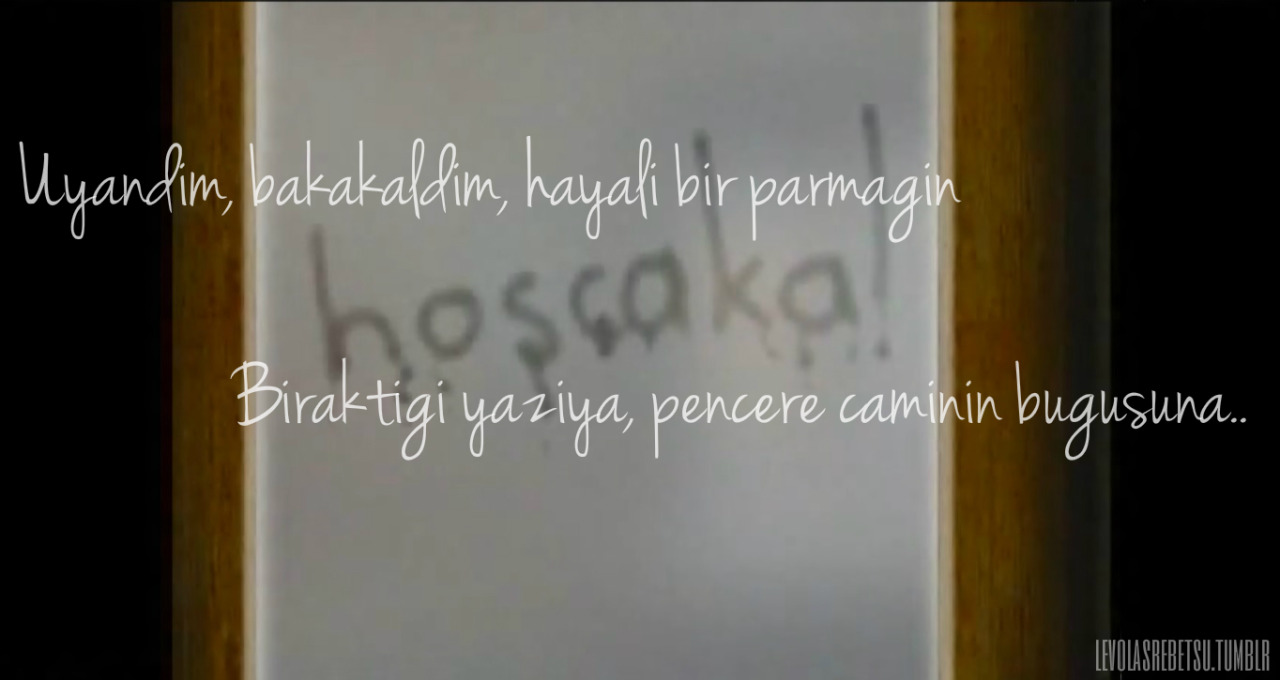 Uyandim, bakakaldim, hayali bir parmagin
hoşçakal
Biraktigi yaziya, pencere caminin bugusuna..
LEVOLASREBETSU.TUMBLR